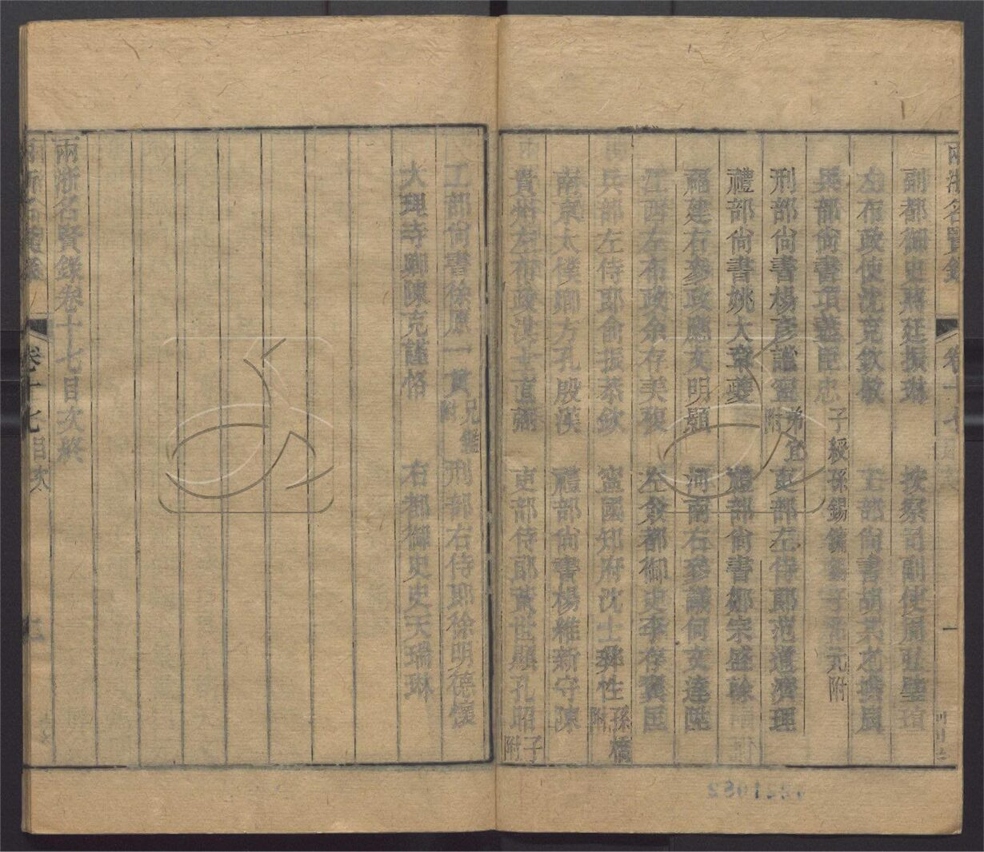 兩浙名賢錄 卷十七 一
副都御史蔣廷振琳 按察司副使周弘璧瑄
左布政使沈克敬敬 工部尚書胡
兵部尚書項藎臣忠 子綬 孫錫 元附
刑部尚書楊彥謐寧 弟宜附 吏部左侍郎范道濟理
禮部尚書姚大章夔 禮部尚書鄒宗盛榦
福建右參政應文明顥 河南右參議何文達陞
江西左布政余存美複 左僉都御史李存翼匡
兵部左侍郎俞振恭欽 寧國知府沈士彝性 孫橋附
南京太僕卿方孔殷漢 禮部尚書楊維新守陳
貴州左布政沈士直 吏部侍郎黃世顯孔昭 子附
工部尚書徐原一貫 兄鑑附 刑部右侍郎徐明德懷
大理寺卿陳克謹恪 右都御史史天瑞琳
兩浙名賢錄卷十七目次終
兩浙名賢錄 卷十七 目次